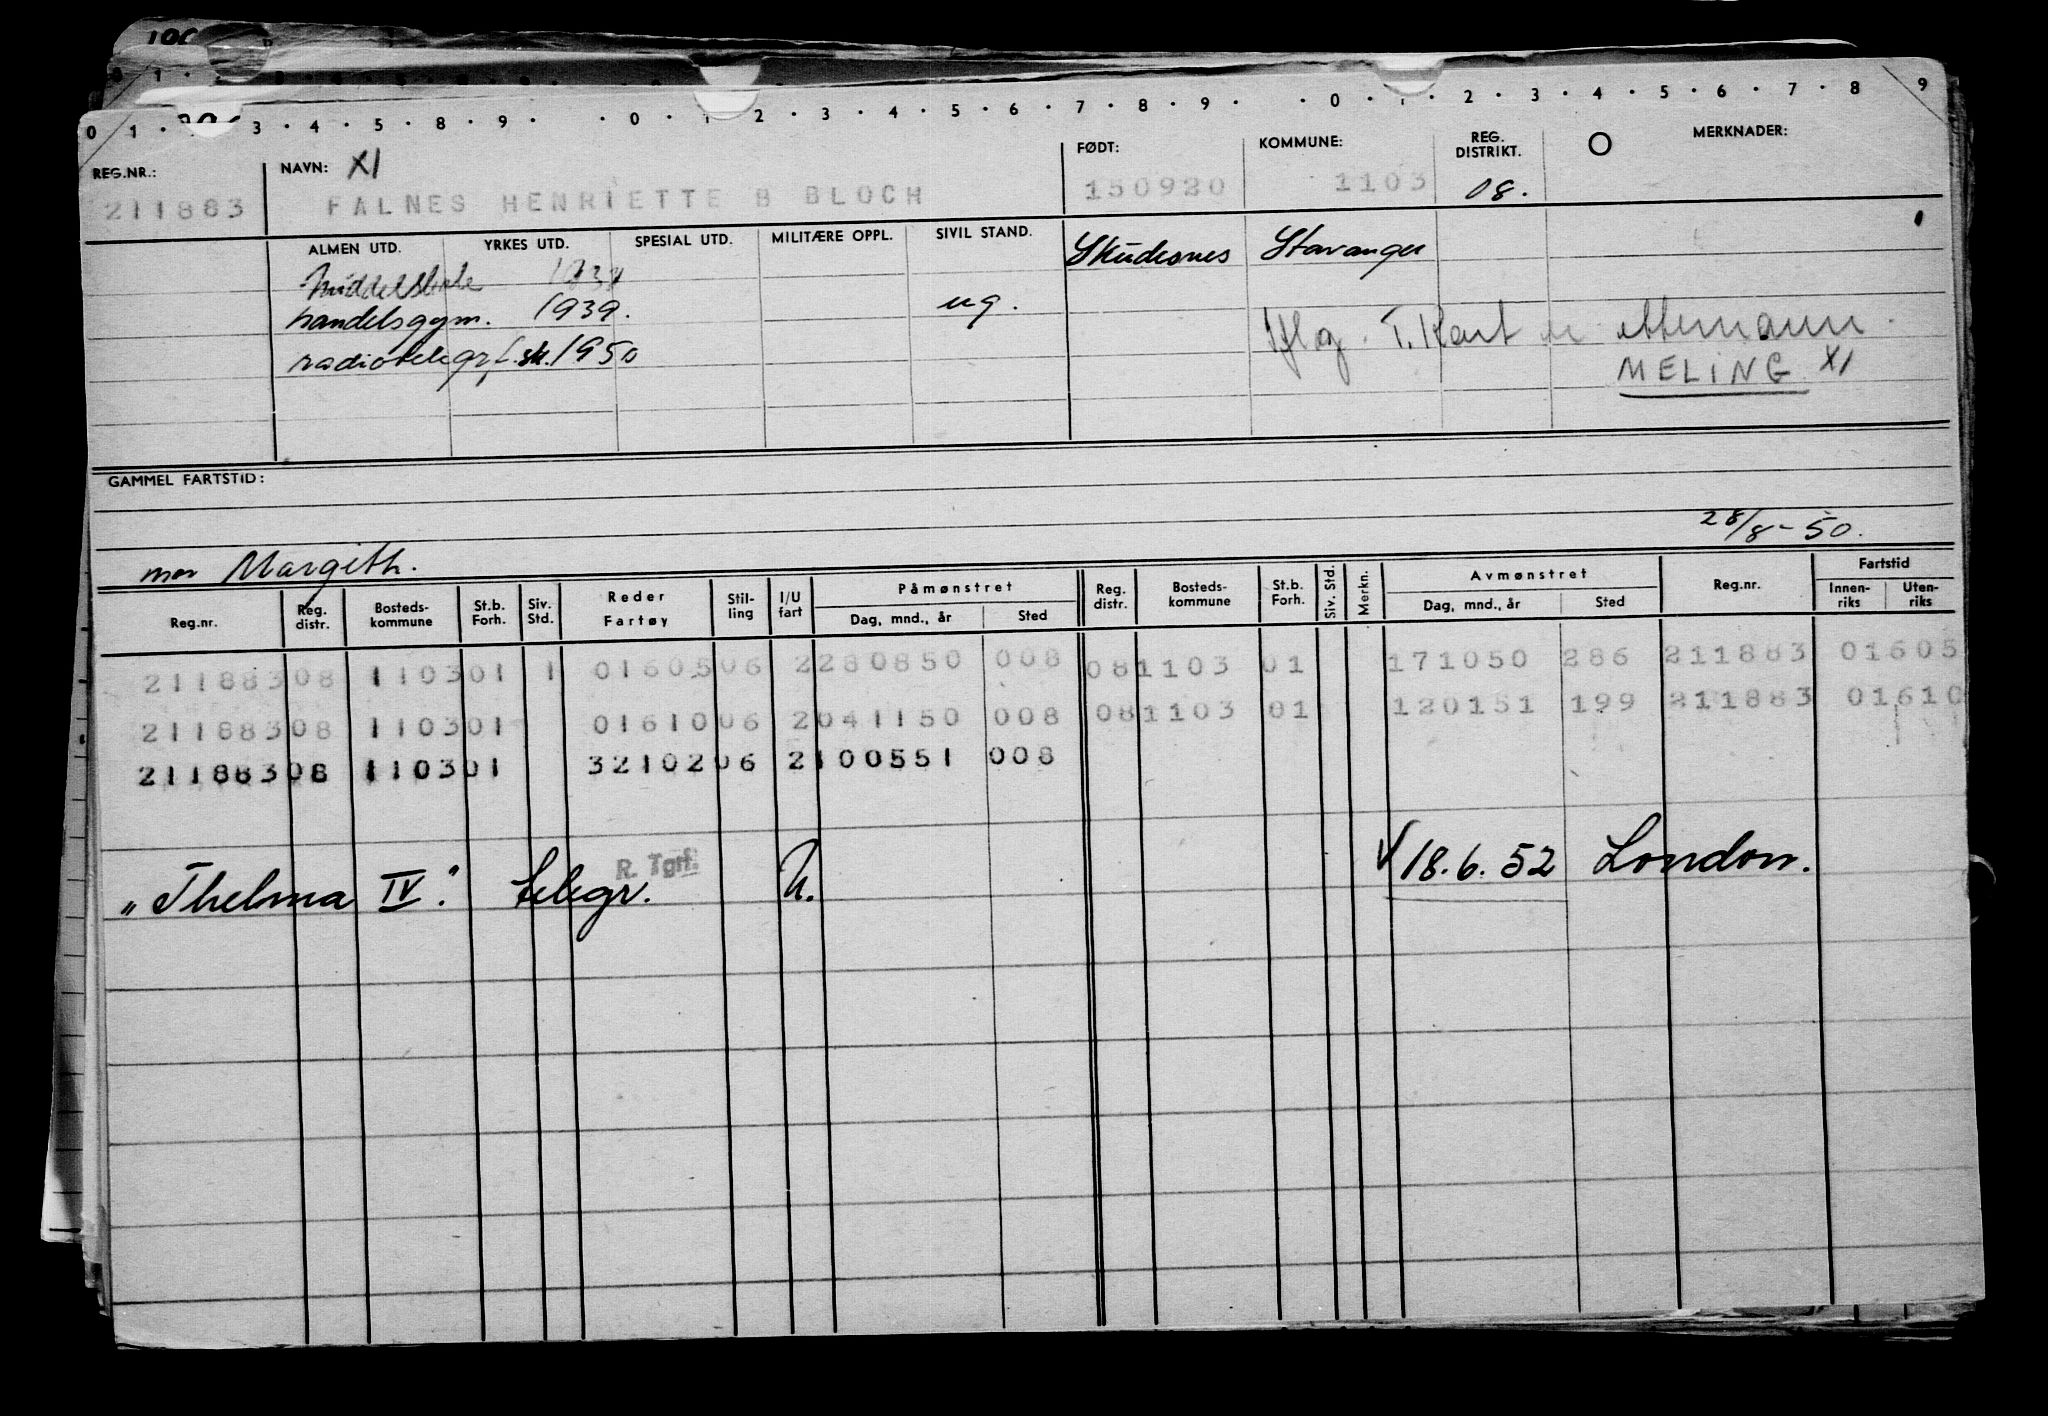 0 1 · 3 · 4 · 5 · 8 · 9 · · 0 · 1 · 2 · 3 · 4 · 5 · 6 · 7 · 8 · 9 · · 0 · 1 · 2 · 3 · 4 · 5 · 6 · 7 · 8 9
REG.NR.: NAVN: XI FØDT: KOMMUNE: REG. DISTRIKT. O MERKNADER:
211883 FALNES HENRIETTE B BLOCH 150920 1103 08.
ALMEN UTD. YRKES UTD. SPESIAL UTD. MILITÆRE OPPL. SIVIL STAND. Skudesnes Stavanger
Middelskole
handelsgym. 1939. ug.
radiotelegrf.sk. 1950 Iflg. T. Kart
MELING XI
GAMMEL FARTSTID:
28/8-50.
mor Margith.
Reg.nr. Reg. distr. Bosteds-kommune St.b. Forh. Siv. Std. Reder Fartøy Stil-ling I/U fart Påmønstret Dag, mnd., år Sted Reg. distr. Bosteds-kommune St.b. Forh. Siv. Std. Merkn. Avmønstret Dag, mnd., år Sted Reg.nr. Fartstid Innen-riks Uten-riks
211883 08 1103 01 1 01605 06 2 280850 008 08 1103 01 171050 286 211883 01605
211883 08 1103 01 01610 06 2 041150 008 08 1103 01 120151 199 211883 01610
211883 08 1103 01 32102 06 2 100551 008
"Thelma IV." telegr. R. Tgrf. U. 18.6.52 London.